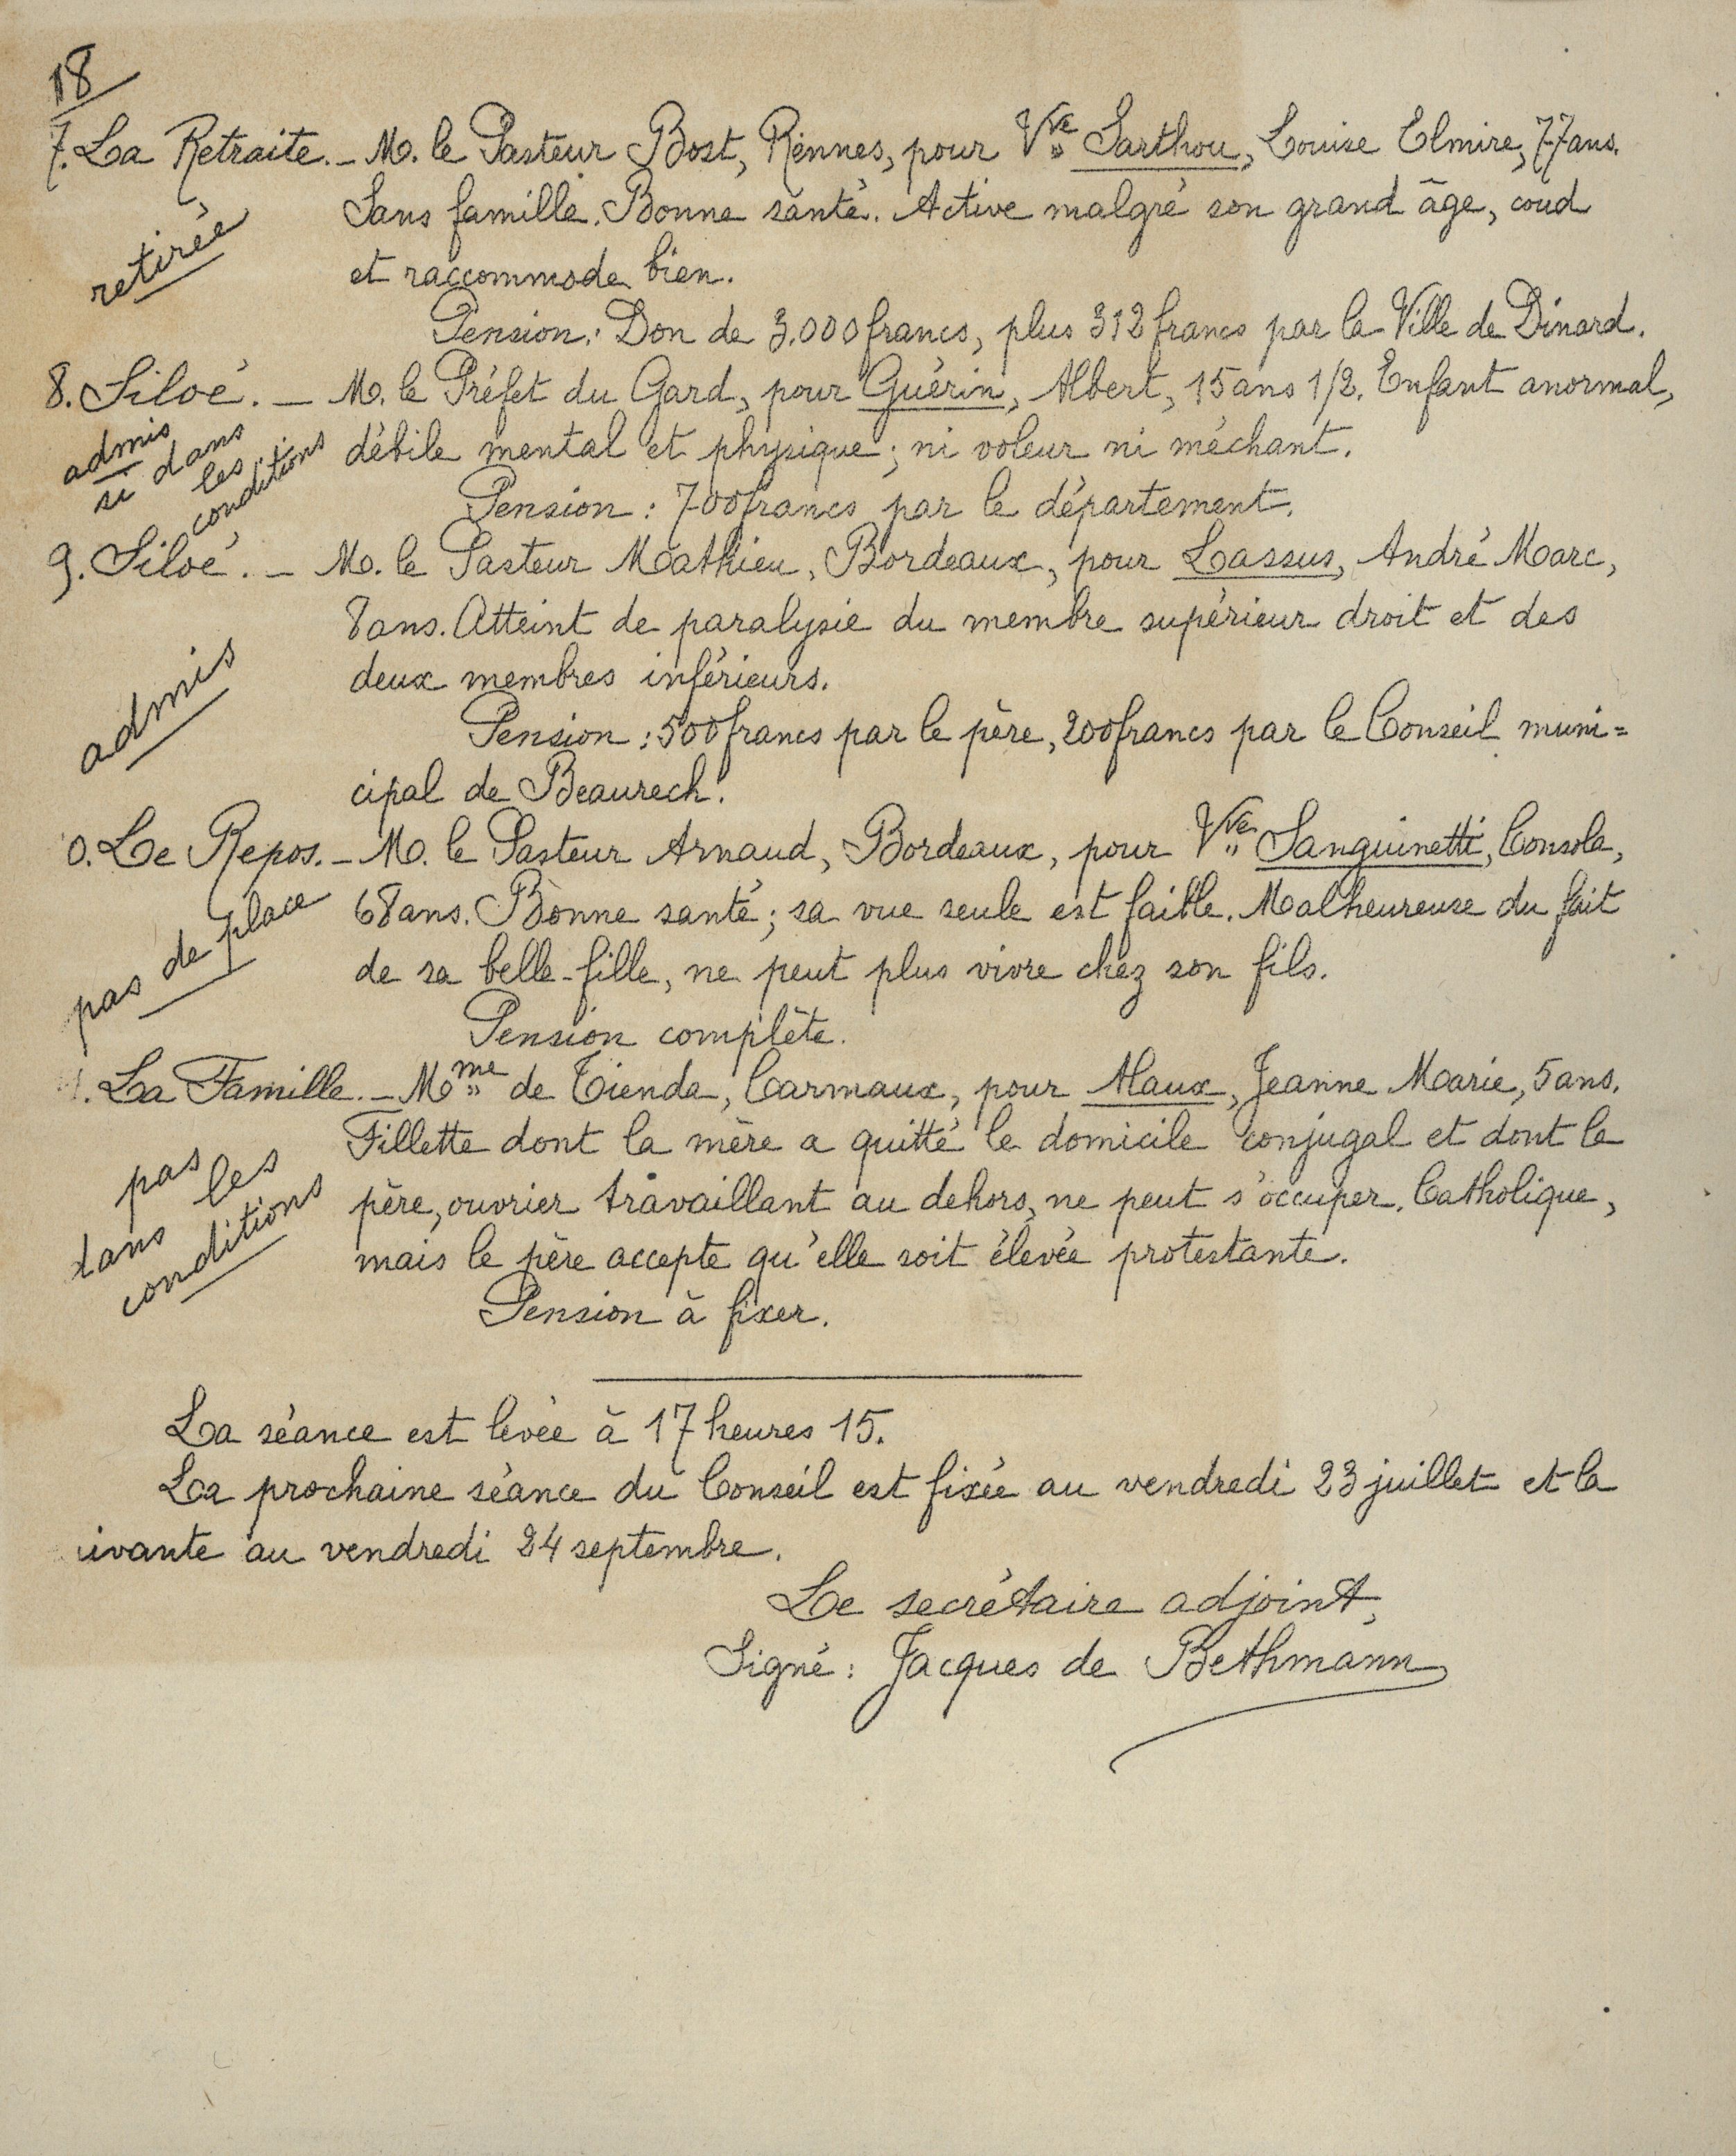 18
7. La Retraite. – M. le Pasteur Bost, Rennes, pour Vve Sarthou, Louise Elmire, 77 ans.
Sans famille. Bonne santé. Active malgré son grand âge, coud
retirée
et raccommode bien.
Pension : Don de 3.000 francs, plus 312 francs par la Ville de Dinard.
8. Siloé. – M. le Préfet du Gard, pour Guérin, Albert, 15 ans 1/2. Enfant anormal,
débile mental et physique ; ni voleur ni méchant.
admis
si dans
les
conditions
Pension : 700 francs par le département.
9. Siloé. – M. le Pasteur Mathieu, Bordeaux, pour Lassus, André Marc,
8 ans. Atteint de paralysie du membre supérieur droit et des
deux membres inférieurs.
admis
Pension : 500 francs par le père, 200 francs par le Conseil muni=
cipal de Beaurech.
0. Le Repos. – M. le Pasteur Arnaud, Bordeaux, pour Vve Sanguinetti, Consola,
68 ans. Bonne santé ; sa vue seule est faible. Malheureuse du fait
pas de place
de sa belle-fille, ne peut plus vivre chez son fils.
Pension complète.
1. La Famille. – Mme de Tienda, Carmaux, pour Maux, Jeanne Marie, 5 ans.
Fillette dont la mère a quitté le domicile conjugal et dont le
pas
dans les
conditions
père, ouvrier travaillant au dehors, ne peut s'occuper. Catholique,
mais le père accepte qu'elle soit élevée protestante.
Pension à fixer.
La séance est levée à 17 heures 15.
La prochaine séance du Conseil est fixée au vendredi 23 juillet et la
uivante au vendredi 24 septembre.
Le secrétaire adjoint,
Signé : Jacques de Bethmann